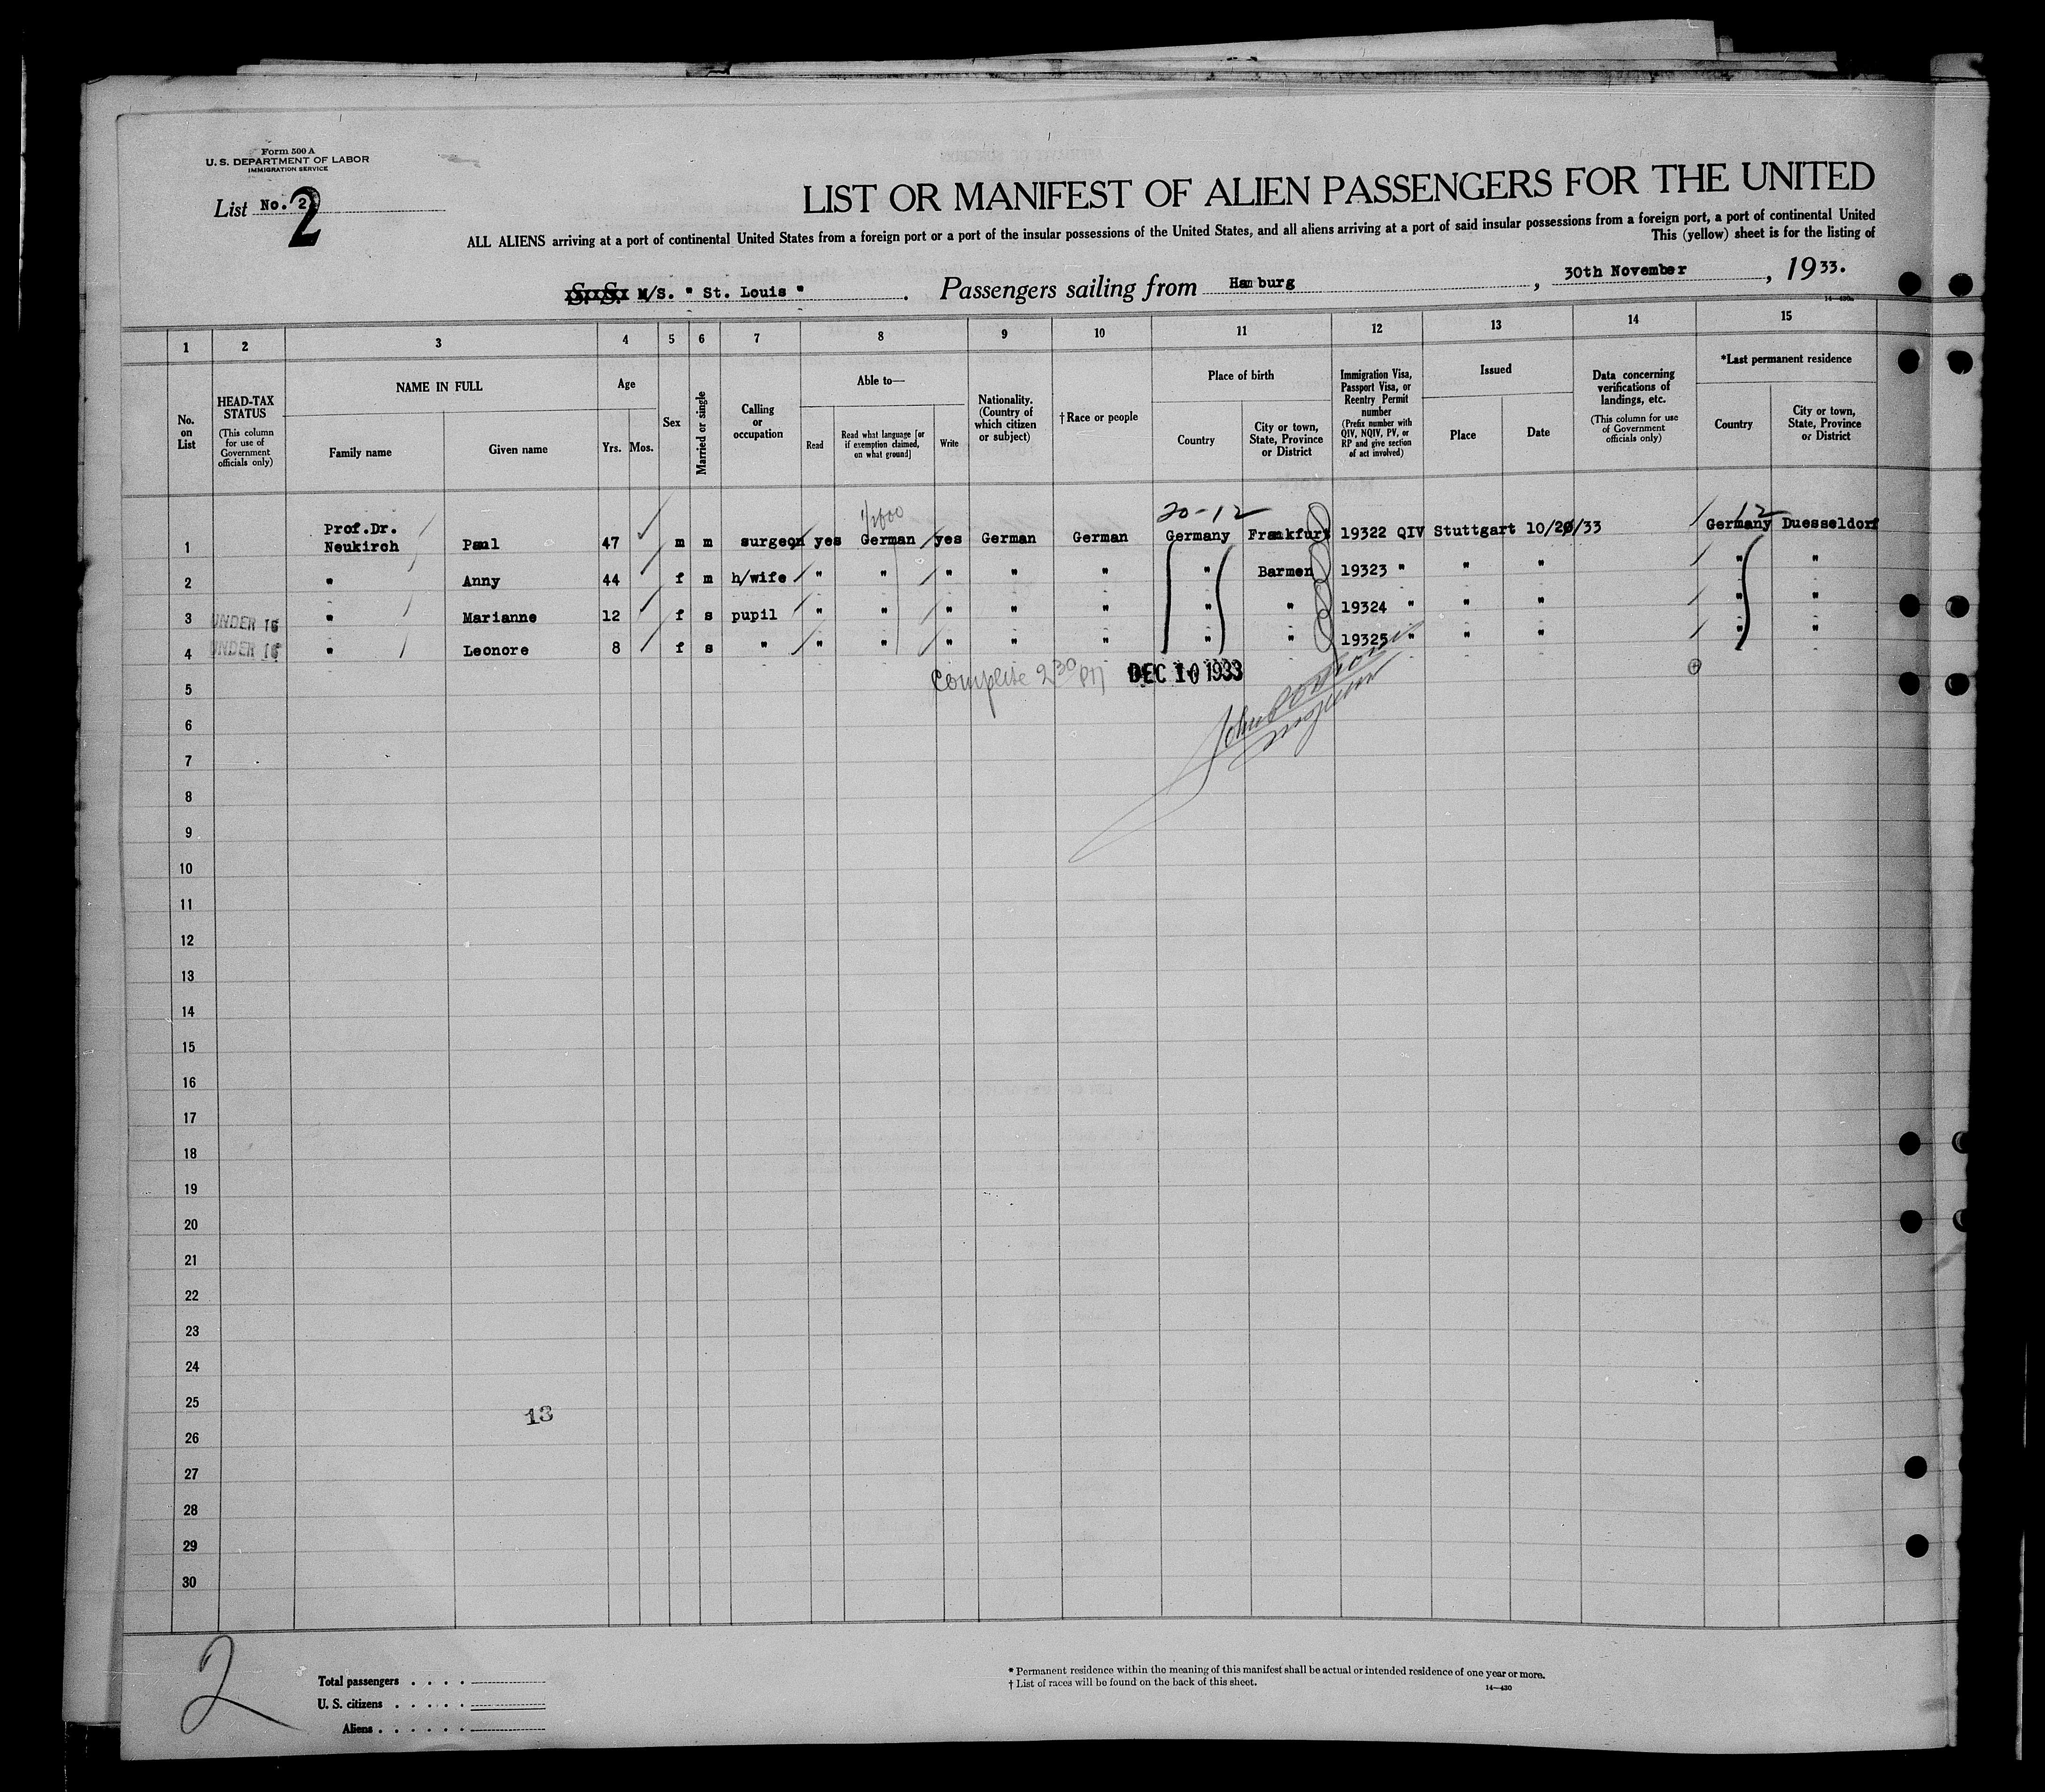 Form 500 A
U. S. DEPARTMENT OF LABOR
IMMIGRATION SERVICE
List No. 2
2
LIST OR MANIFEST OF ALIEN PASSENGERS FOR THE UNITED
ALL ALIENS arriving at a port of continental United States from a foreign port or a port of the insular possessions of the United States, and all aliens arriving at a port of said insular possessions from a foreign port, a port of continental United
This (yellow) sheet is for the listing of
S. S. M/S. " St. Louis " . Passengers sailing from Hamburg , 30th November , 1933.
1 2 3 4 5 6 7 8 9 10 11 12 13 14 15
No. on List
HEAD-TAX STATUS
(This column for use of Government officials only)
NAME IN FULL
Family name
Given name
Age
Yrs. Mos.
Sex
Married or single
Calling or occupation
Able to—
Read
Read what language [or if exemption claimed, on what ground]
Write
Nationality. (Country of which citizen or subject)
† Race or people
Place of birth
Country
City or town, State, Province or District
Immigration Visa, Passport Visa, or Reentry Permit number
(Prefix number with QIV, NQIV, PV, or RP and give section of act involved)
Issued
Place
Date
Data concerning verifications of landings, etc.
(This column for use of Government officials only)
*Last permanent residence
Country
City or town, State, Province or District
20-12
12
Prof.Dr.
1 Neukirch Paul 47 m m surgeon yes German yes German German Germany Frankfurt 19322 QIV Stuttgart 10/20/33 Germany Duesseldorf
2 " Anny 44 f m h/wife " " " " " " Barmen 19323 " " " " "
3 UNDER 16 " Marianne 12 f s pupil " " " " " " " 19324 " " " " "
4 UNDER 16 " Leonore 8 f s " " " " " " " " 19325 " " " " "
5 complete 2 30 PM DEC 10 1933
6
7
8
9
10
11
12
13
14
15
16
17
18
19
20
21
22
23
24
25
13
26
27
28
29
30
2
Total passengers . . . .
U. S. citizens . . . . .
Aliens . . . . . .
* Permanent residence within the meaning of this manifest shall be actual or intended residence of one year or more.
† List of races will be found on the back of this sheet.
14—430